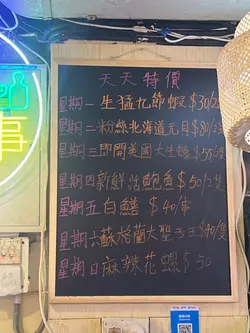 天天特價
星期一 生猛九節蝦 $30/
星期二 粉絲北海道元貝 $80/
星期三 即開美國大生蠔 $55/
星期四 新鮮活鮑魚 $50/2隻
星期五 白鱔 $40/串
星期六 蘇格蘭大聖子王 $40/隻
星期日 麻辣花螺 $50
事